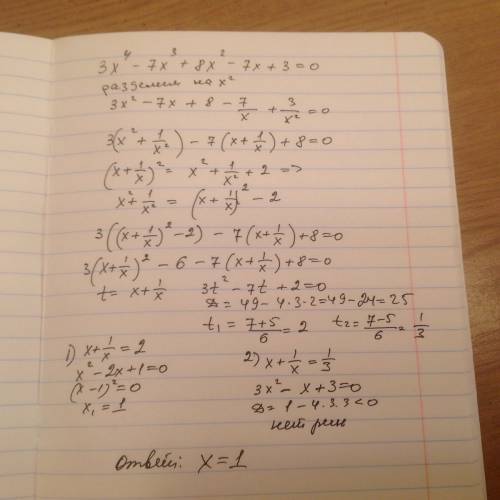 3x⁴ - 7x³ + 8x² - 7x + 3 = 0
разделим на x²
3x² - 7x + 8 - 7/x + 3/x² = 0
3(x² + 1/x²) - 7(x + 1/x) + 8 = 0
(x + 1/x)² = x² + 1/x² + 2 =>
x² + 1/x² = (x + 1/x)² - 2
3((x + 1/x)² - 2) - 7(x + 1/x) + 8 = 0
3(x + 1/x)² - 6 - 7(x + 1/x) + 8 = 0
t = x + 1/x
3t² - 7t + 2 = 0
D = 49 - 4·3·2 = 49 - 24 = 25
t₁ = (7+5)/6 = 2 t₂ = (7-5)/6 = 1/3
1) x + 1/x = 2
x² - 2x + 1 = 0
(x - 1)² = 0
x₁ = 1
2) x + 1/x = 1/3
3x² - x + 3 = 0
D = 1 - 4·3·3 < 0
нет реш
ответ: x = 1